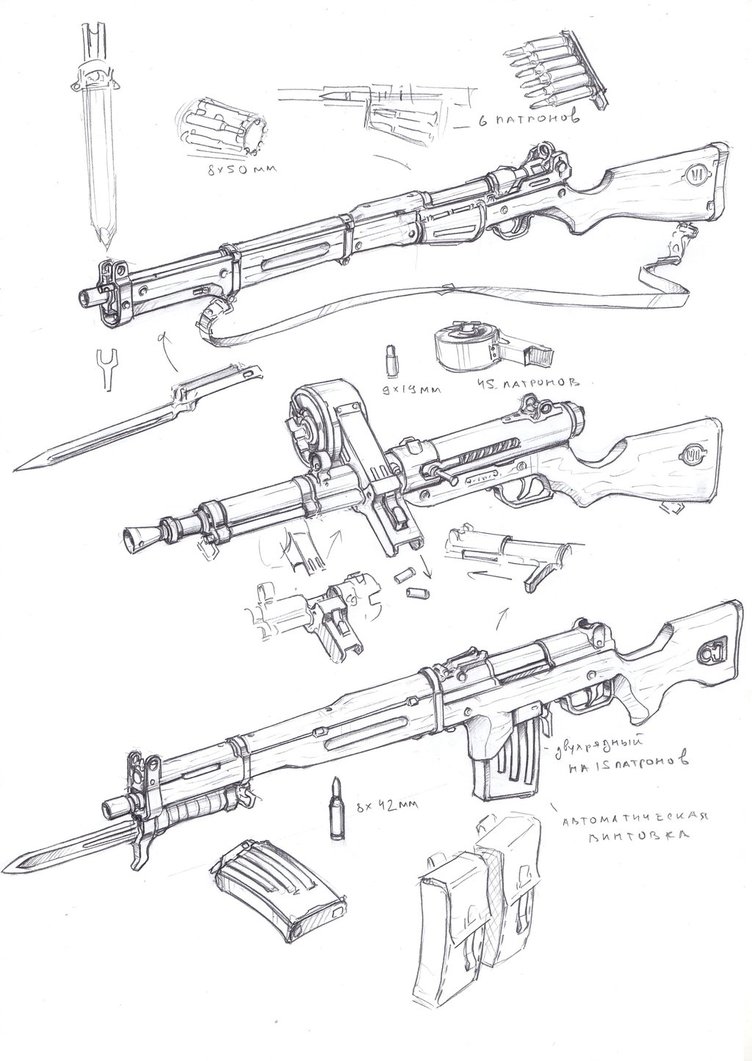 6 патронов
8х50 мм
VI
9х19мм
45 патронов
двухрядный
на 15 патронов
8х42мм
автоматическая
винтовка